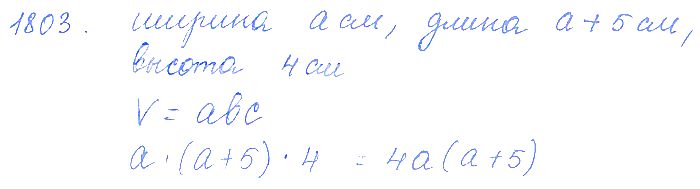 1803. ширина a см, длина a+5 см,
высота 4 см
V = abc
a · (a+5) · 4 = 4a(a+5)